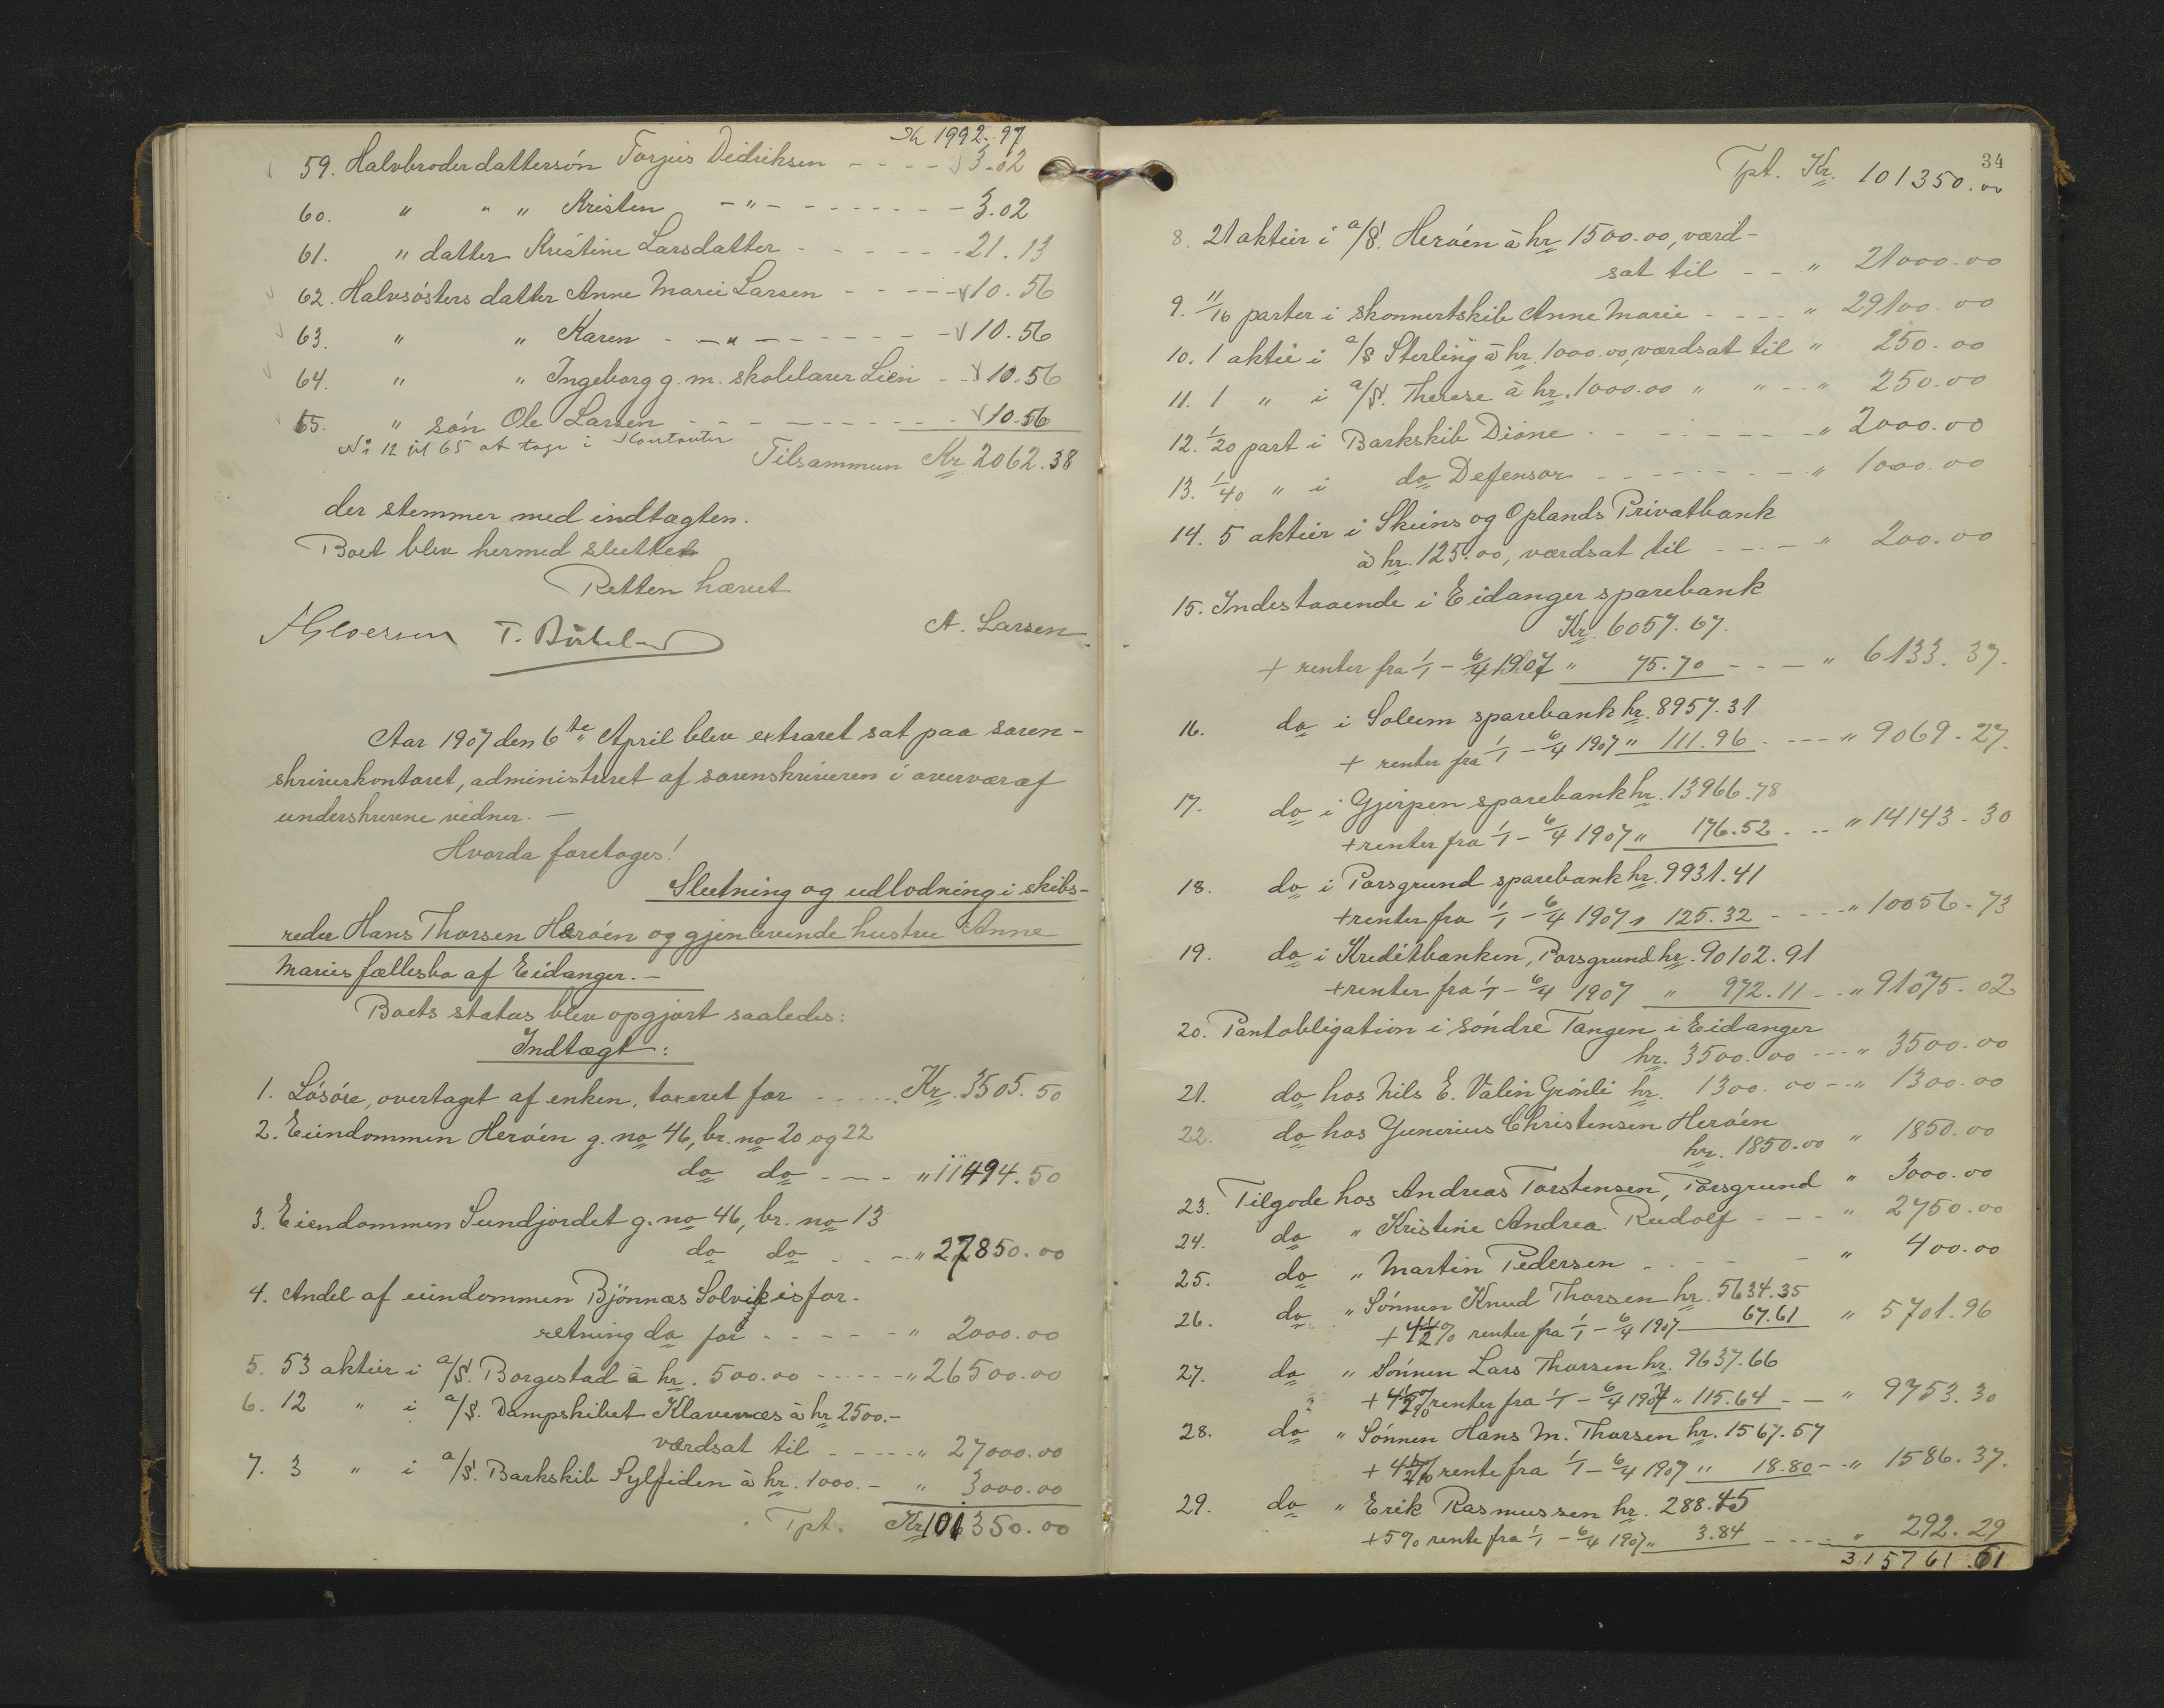 Kr 1992.97
59. Halvbroderdattersön Torjus Didriksen - - - - 3.02
60. " " " Kristen - " - - - - - - - 3.02
61. " datter Kristine Larsdatter - - - - - - 21.13
62. Halvsösters datter Anne Marie Larsen - - - - - 10.56
63. " " Karen - - " - - - - - - - 10.56
64. " " Ingeborg g. m. skolelærer Lien - - 10.56
65. " sön Ole Larsen - - - - - - - - - 10.56
No 12 til 65 at tage i Kontanter
Tilsammen Kr 2062.38
der stemmer med indtægten.
Boet blev hermed sluttet
Retten hævet
A. Larsen
Aar 1907 den 6te April blev extraret sat paa soren-
skriverkontoret, administreret af sorenskriveren i overvær af
underskrevne vidner. —
Hvorda foretoges!
Slutning og udlodning i skibs-
reder Hans Thorsen Heröen og gjenlevende hustru Anne
Maries fællesbo af Eidanger. —
Boets status blev opgjort saaledes:
Indtægt:
1. Lösöre, overtaget af enken, taxeret for - - - - - Kr. 3505.50
2. Eiendommen Heröen g. no 46, br. no 20 og 22
do do - - - - " 11494.50
3. Eiendommen Sundjordet g. no 46, br. no 13
do do - - - - " 27850.00
4. Andel af eiendommen Bjönnæs Solvik isfor-
retning do for - - - - - " 2000.00
5. 53 aktier i a/S. Borgestad à kr. 500.00 - - - - - " 26500.00
6. 12 " i a/S. Dampskibet Klavenæs à kr 2500.-
værdsat til - - - - - " 27000.00
7. 3 " i a/S. Barkskib Sylfiden à kr. 1000. - " 3000.00
Tpt. Kr 101350.00
34
Tpt. Kr. 101350.00
8. 21 aktier i a/S. Heröen à kr 1500.00, værd-
sat til - - " 21000.00
9. 11/16 parter i skonnertskib Anne Marie - - - - " 29100.00
10. 1 aktie i a/S Sterling à kr. 1000.00, værdsat til " 250.00
11. 1 " i a/S. Therese à kr. 1000.00 " " - - " 250.00
12. 1/20 part i Barkskib Dione - - - - - - - " 2000.00
13. 1/40 " i do Defensor - - - - - - - " 1000.00
14. 5 aktier i Skiens og Oplands Privatbank
à kr. 125.00, værdsat til - - - - " 200.00
15. Indestaaende i Eidanger sparebank
Kr. 6057.67.
+ renter fra 1/1 - 6/4 1907 " 75.70 - - - " 6133.37.
16. do i Solum sparebank kr. 8957.31
+ renter fra 1/1 - 6/4 1907 " 111.96 - - - - " 9069.27.
17. do i Gjerpen sparebank kr. 13966.78
+ renter fra 1/1 - 6/4 1907 " 176.52 - - - " 14143.30
18. do i Porsgrund sparebank kr. 9931.41
+ renter fra 1/1 - 6/4 1907 " 125.32 - - - - " 10056.73
19. do i Kreditbanken, Porsgrund kr. 90102.91
+ renter fra 1/1 - 6/4 1907 " 972.11 - - " 91075.02
20. Pantobligation i söndre Tangen i Eidanger
kr. 3500.00 - - - " 3500.00
21. do hos Nils E. Valin Grönli kr. 1300.00 - - " 1300.00
22. do hos Gunerius Christensen Heröen
kr. 1850.00 " 1850.00
23. Tilgode hos Andreas Torstensen, Porsgrund " 3000.00
24. do " Kristine Andrea Rudolf - - - " 2750.00
25. do " Martin Pedersen - - - - - " 400.00
26. do " Sönnen Knud Thorsen kr. 5634.35
+ 4 1/2 % renter fra 1/1 - 6/4 1907 67.61 " 5701.96
27. do " Sönnen Lars Thorsen kr. 9637.66
+ 4 1/2 % renter fra 1/1 - 6/4 1907 " 115.64 - - " 9753.30
28. do " Sönnen Hans M. Thorsen kr. 1567.57
+ 4 1/2 % rente fra 1/1 - 6/4 1907 " 18.80 - - " 1586.37.
29. do " Erik Rasmussen kr. 288.45
+ 5 % rente fra 1/1 - 6/4 1907 " 3.84 - - - - " 292.29
315761.61